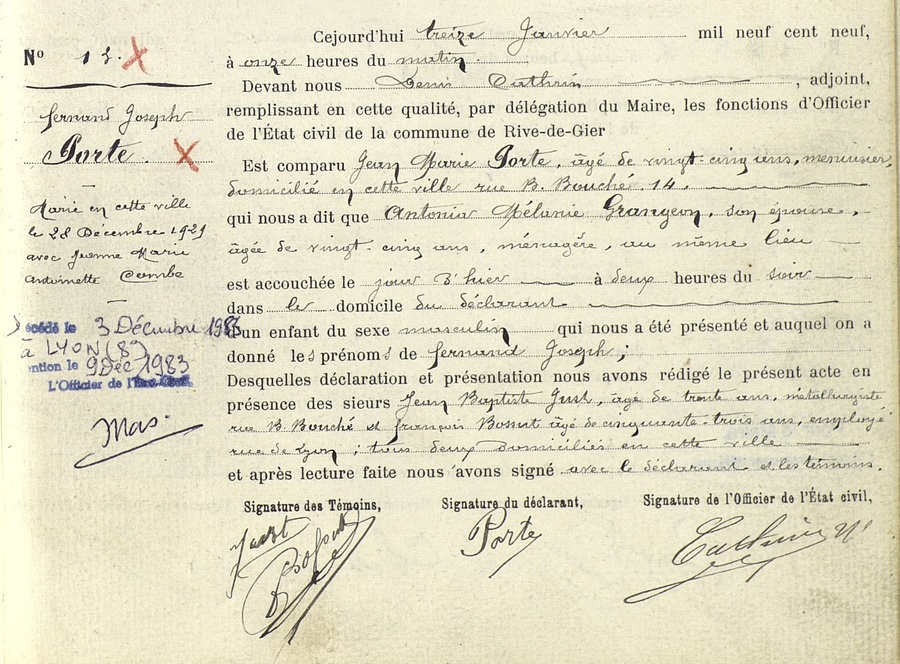 N° 13.
Fernand Joseph
Porte.
Marié en cette ville
le 28 Décembre 1929
avec Jeanne Marie
Antoinette Combe
écédé le 3 Décembre 1983
à LYON (8e)
ention le 9 Déc 1983
L'Officier de l'État Civil
Mas.
Cejourd'hui treize Janvier mil neuf cent neuf,
à onze heures du matin.
Devant nous Denis Cathrin, adjoint,
remplissant en cette qualité, par délégation du Maire, les fonctions d'Officier
de l'État civil de la commune de Rive-de-Gier
Est comparu Jean Marie Porte, âgé de vingt-cinq ans, menuisier,
domicilié en cette ville rue B. Bouché 14.
qui nous a dit que Antonia Mélanie Grangeon, son épouse,
âgée de vingt-cinq ans, ménagère, au même lieu
est accouchée le jour d'hier à deux heures du soir
dans le domicile du déclarant
d'un enfant du sexe masculin qui nous a été présenté et auquel on a
donné les prénoms de Fernand Joseph;
Desquelles déclaration et présentation nous avons rédigé le présent acte en
présence des sieurs Jean Baptiste Just, âgé de trente ans, métallurgiste
rue B. Bouché et François Bossut âgé de cinquante-trois ans, employé
rue de Lyon; tous deux domiciliés en cette ville
et après lecture faite nous avons signé avec le déclarant et les témoins.
Signature des Témoins, Signature du déclarant, Signature de l'Officier de l'État civil,
Just
Bossut
Porte
Cathrin